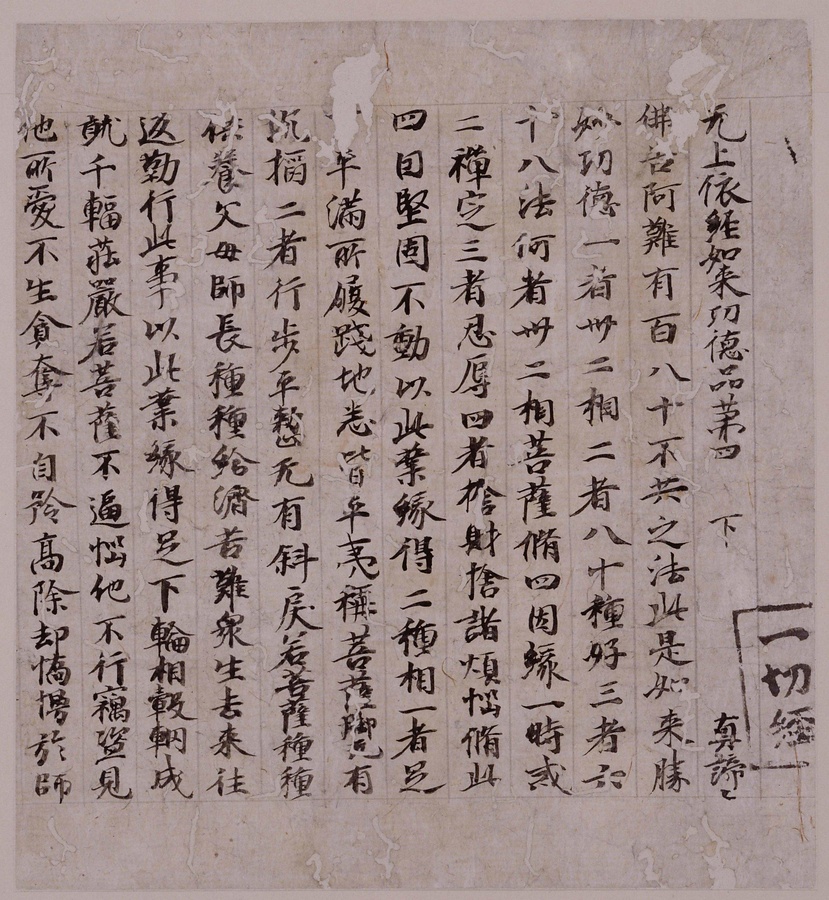 一切經
无上依經如来功德品第四 下 真諦〻
佛告阿難有百八十不共之法此是如来勝
妙功德一者卅二相二者八十種好三者六
十八法何者卅二相菩薩脩四因緣一時戒
二禪定三者忍辱四者捨財捨諸煩惱脩此
四因堅固不動以此業緣得二種相一者足
平滿所履踐地悉皆平夷稱菩薩脚无有
二者行步平整无有斜戾若菩薩種種
供養父母師長種種給濟苦難衆生去来往
返勤行此事以此業緣得足下輪相轂輞成
就千輻莊嚴若菩薩不逼惱他不行竊盜見
他所愛不生貪奪不自矜高除却憍慢於師